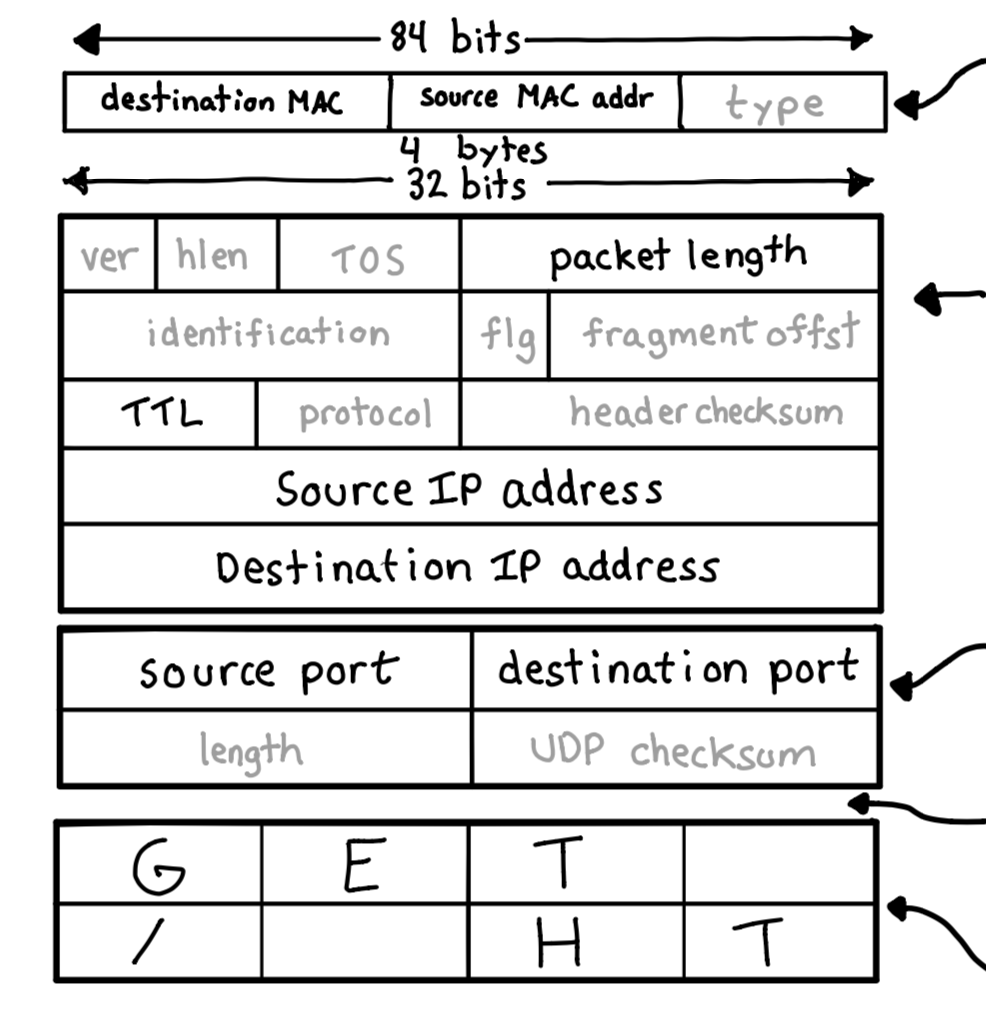 84 bits
destination MAC source MAC addr type
4 bytes
32 bits
ver hlen TOS packet length
identification flg fragment offst
TTL protocol header checksum
Source IP address
Destination IP address
source port destination port
length UDP checksum
G E T
/ H T